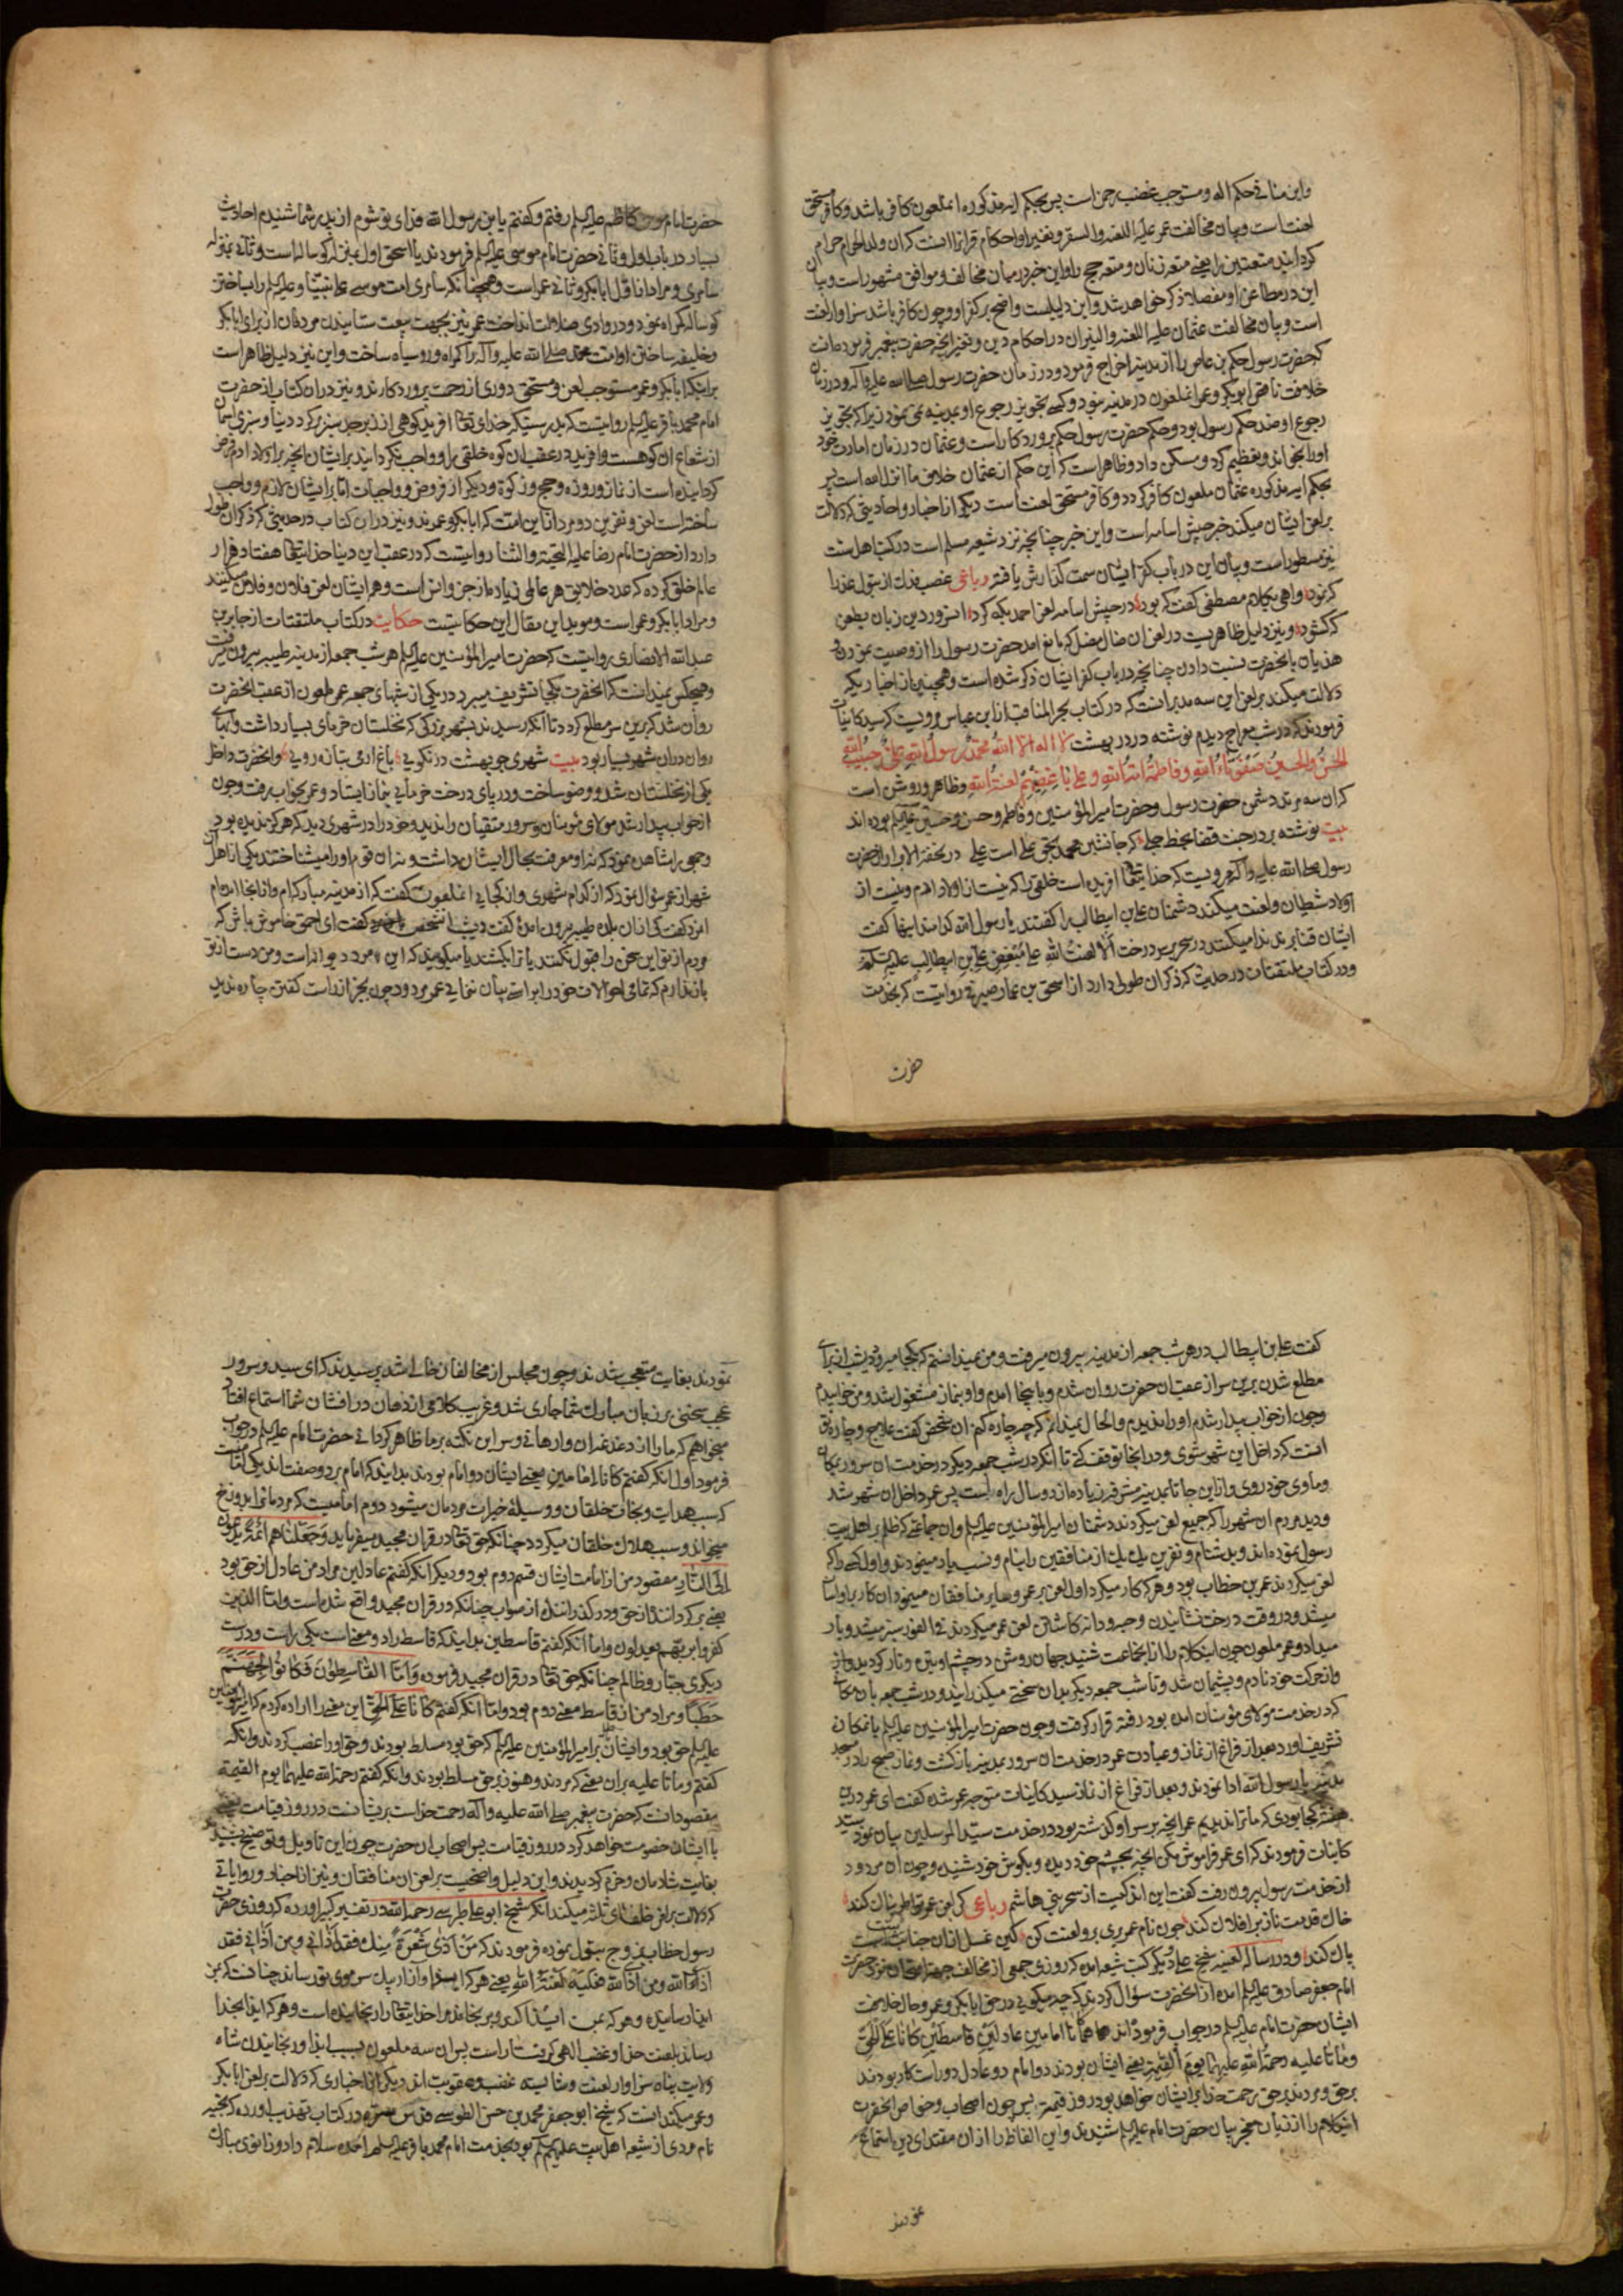 واین منافی حکم اله ومستوجب غضب رحمن است پس بحکم ایه مذکوره انملعون کافر باشد وکافر مستحق
لعنت است وبیان مخالفت عمر علیه اللعنه والسقر وتغیر او احکام قرانرا انست که ان ولد الحرام حرام
کردانید متعتین را یعنے متعه زنان ومتعه حج را واین خبر در میان مخالف وموافق مشهور است وبیان
این در مطاعن او مفصلا ذکر خواهد شد واین دلیلیست واضح بر کفر او وچون کافر باشد سزاوار لعنت
است وبیان مخالفت عثمان علیه اللعنه والنیران در احکام دین وتغیر انچه حضرت پیغمبر فرموده انست
که حضرت رسول حکم بن عاص را از مدینه اخراج فرمود ودر زمان حضرت رسول صلے الله علیه واله ودر زمان
خلافت ناحق ابوبکر وعمر انملعون در مدینه نبود وکسے تجویز رجوع او بمدینه نمی نمود زیرا که تجویز
رجوع او ضد حکم رسول بود وحکم حضرت رسول حکم پروردکار است وعثمان در زمان امارت خود
اورا بخواند وتعظیم کرد ومسکن داد وظاهر است که این حکم از عثمان خلاف ما انزل الله است پس
بحکم ایه مذکوره عثمان ملعون کافر کردد وکافر مستحق لعنت است دیکر از اخبار واحادیثی که دلالت
بر لعن ایشان میکند خبر جیش اسامه است واین خبر چنانچه نزد شیعه مسلم است در کتب اهل سنت
نیز مسطور است وبیان این در باب کفر ایشان سمت کذارش یافته رباعی غصب فدک از بتول عذرا
که نمود واهی بکلام مصطفی کفت که بود در جیش اسامه لعن احمد بکه کرد انروز در دین زبان بطعن
که کشود ونیز دلیل ظاهریست در لعن ان ضال مضل که مانع امد حضرت رسول را از وصیت نمودن و
هذیان بانحضرت نسبت دادن چنانچه در باب کفر ایشان ذکر شده است وهمچنین از اخباریکه
دلالت میکند بر لعن این سه مدبر انست که در کتاب بحر المناقب از ابن عباس مرویست که سید کاینات
فرمودند که در شب معراج دیدم نوشته در در بهشت لا اله الا الله محمد رسول الله علی حبیب الله
الحسن والحسین صفوتا الله وفاطمة امة الله وعلی باغضیهم لعنة الله وظاهر وروشن است
که ان سه مرتد دشمن حضرت رسول وحضرت امیر المؤمنین وفاطمه وحسن وحسین علیهم السلم بوده اند
بیت نوشته بر در جنت قضا بخط جلے که جانشین محمد بحق علے است علے در تحفة الابرار از حضرت
رسول صلے الله علیه واله مرویست که خدایتعا افریده است خلقی را که نیستند از اولاد ادم ونیستند از
اولاد شیطان ولعنت میکنند دشمنان علی بن ابیطالب را کفتند یا رسول الله کدامند اینها کفت
ایشان قنابرند ندا میکنند در سحر بر سر درخت الا لعنة الله علی مبغضی علی بن ابیطالب علیه السلم
ودر کتاب ملتقتات در حدیثی که ذکر ان طولی دارد از اسحق بن عمار صیرفی روایتست که بخدمت
حضرت
حضرت امام موسی کاظم علیه السلم رفتم وکفتم یا بن رسول الله فدای تو شوم از پدر شما شنیدم احادیث
بسیار در باب اول وثانی حضرت امام موسی علیه السلم فرمودند یا اسحق اول بمنزله کوساله است وثانی بمنزله
سامری ومراد از اول ابابکر وثانی عمر است وهمچنانکه سامری امت موسے علی نبینا وعلیه السلم را بساختن
کوساله کمراه نمود ودر وادی ضلالت انداخت عمر نیز بجهت بیعت ستانیدن مردمان از برای ابابکر
وخلیفه ساختن او امت محمد صلے الله علیه واله را کمراه وروسیاه ساخت واین نیز دلیل ظاهر است
بر اینکه ابابکر وعمر مستوجب لعن ومستحق دوری از رحمت پروردکارند ونیز در ان کتاب از حضرت
امام محمد باقر علیه السلم روایتست که بدرستیکه خدای تعا افریده کوهی از زبرجد سبز بر کرد دنیا وسبزی اسمان
از شعاع ان کوهست وافریده در عقب ان کوه خلقی را وواجب نکردانیده بر ایشان انچه بر اولاد ادم فرض
کردانیده است از نماز وروزه وحج وزکوة ودیکر از فروض وواجبات اما بر ایشان لازم وواجب
ساخته است لعن ونفرین دو مرد از این امت که ابابکر وعمرند ونیز در ان کتاب در حدیثی که ذکر ان طول
دارد از حضرت امام رضا علیه التحیة والثنا روایتست که در عقب این دنیا خدایتعا هفتاد هزار
عالم خلق کرده که عدد خلایق هر عالمی زیاده از جن وانس است وهمه ایشان لعن فلان وفلان میکنند
ومراد ابابکر وعمر است ومؤید این مقال این حکایتست حکایت در کتاب ملتقتات از جابر بن
عبد الله الانصاری روایتست که حضرت امیر المؤمنین علیه السلم هر شب جمعه از مدینه طیبه بیرون میرفت
وهیچکس نمیدانست که انحضرت بکجا تشریف میبرد در یکی از شبهای جمعه عمر ملعون از عقب انحضرت
روان شد که برین سر مطلع کردد تا انکه رسیدند بشهر بزرکی که نخلستان خرمای بسیار داشت وابهای
روان در ان شهر بسیار بود بیت شهری چو بهشت در نکویی باغ ارمی بتازه رویی وانحضرت داخل
یکی از نخلستان شد ووضو ساخت ودر پای درخت خرمایی بنماز ایستاد وعمر بخواب رفت وچون
از خواب بیدار شد مولای مؤمنان وسرور متقیان را ندید وخود را در شهری دید که هرکز ندیده بود
وجمعی را مشاهده نمود که نه او معرفت بحال ایشان داشت ونه ان قوم اورا میشناختند یکی از اهل ان
شهر از عمر سؤال نمود که از کدام شهری واز کجایی انملعون کفت که از مدینه مبارکه ام واز انجا امده ام
انمرد کفت کی از ان بلده طیبه بیرون امدۀ کفت دیشب انشخص کفت ای احمق خاموش باش که
مردم از تو این سخن را قبول نکنند یا ترا بکشند یا میکویند که این مرد دیوانه است ومن دست از تو
باز ندارم که تمامی احوالات خود را براستی بیان نمایی عمر مردود چون بجز از راست کفتن چاره ندید
کفت علی بن ابیطالب در هر شب جمعه از مدینه بیرون میرفت ومن نمیدانستم که بکجا میرود دیشب از برای
مطلع شدن برین سر از عقب ان حضرت روان شدم وباینجا امدم واو بنماز مشغول شد ومن خوابیدم
وچون از خواب بیدار شدم اورا ندیدم والحال نمیدانم که چه چاره کنم ان شخص کفت علاج وچاره تو
انست که داخل این شهر شوی ودر اینجا توقف کنی تا انکه در شب جمعه دیکر در خدمت ان سرور بمکان
وماوی خود روی واز این جا تا بمدینه مشرفه زیاده از دو سال راه است پس عمر داخل ان شهر شد
ودید مردم ان شهر را که جمیع لعن میکردند دشمنان امیر المؤمنین علیه السلم وان جماعتی که ظلم بر اهل بیت
رسول نموده اند وبدشنام ونفرین یک یک از منافقین را بنام ونسب یاد مینمودند واول کسے را که
لعن میکردند عمر بن خطاب بود وهر که کار میکرد اول لعن بر عمر وسایر منافقان مینمود ان کار براو اسان
میشد ودر وقت درخت نشانیدن وحبه ودانه کاشتن لعن عمر میکردند فی الفور سبز میشد وبار
میداد وعمر ملعون چون اینکلام را از انجماعت شنید جهان روشن در چشم او تیره وتار کردید واز
وانحرکت خود نادم وپشیمان شد وتا شب جمعه دیکر بدان سختی میکذرانید ودر شب جمعه بان مکان
که در خدمت مولای مؤمنان امده بود رفته قرار کرفت وچون حضرت امیر المؤمنین علیه السلم بانمکان
تشریف اورد بعد از فراغ از نماز وعبادت عمر در خدمت ان سرور بمدینه بازکشت ونماز صبح را در مسجد
مدینه با رسول الله ادا نمودند وبعد از فراغ از نماز سید کاینات متوجه عمر شده کفت ای عمر درین
هفته کجا بودی که ما ترا ندیدیم عمر انچه بر سر او کذشته بود در خدمت سید المرسلین بیان نمود سید
کاینات فرمودند که ای عمر فراموش مکن انچه بچشم خود دیده وبکوش خود شنیده وچون ان مردود
از خدمت رسول بیرون رفت کفت این اندکیست از سحر بنی هاشم رباعی
خاک قدمت ناز بر افلاک کند چون نام عمر بری برو لعنت کن کین غسل از ان جنابتت
پاک کند ودر رساله لعنیه شیخ علی ودیکر کتب شیعه امده که روزی جمعی از مخالفین بجهت امتحان نزد حضرت
امام جعفر صادق علیه السلم امده از انحضرت سؤال کردند که چه میکویی در حق ابابکر وعمر وحال خلافت
ایشان حضرت امام علیه السلم در جواب فرموده اند هما کانا امامین عادلین قاسطین کانا علی الحق
وماتا علیه رحمة الله علیهما یوم القیمة یعنے ایشان بودند دو امام دو عادل دو راستکار بودند
بر حق ومردند بر حق رحمت خدا بر ایشان خواهد بود روز قیمت پس چون اصحاب وخواص انحضرت
اینکلام را از زبان معجز بیان حضرت امام علیه السلم شنیدند واین الفاظ را از ان مقتدای دین استماع
نمودند
نمودند بغایت متعجب شدند وچون مجلس از مخالفان خالی شد پرسیدند که ای سید وسرور
عجب سخنی بر زبان مبارک شما جاری شد وغریب کلامی از دهان در افشان شما استماع افتاد
میخواهیم که مارا از دغدغه ان وارهانی وسر این نکته بر ما ظاهر کردانی حضرت امام علیه السلم در جواب
فرمود اول انکه کفتم کانا امامین یعنے ایشان دو امام بودند بدانید که امام بر دو صفت اند یکی امامیست
که سبب هدایت ونجات خلقان ووسیلۀ خیرات مردمان میشود دوم امامیست که مردمانرا بدوزخ
میخواند وسبب هلاک خلقان میکردد چنانکه حق تعا در قران مجید میفرماید وجعلناهم ائمة یدعون
الی النار مقصود من از امامت ایشان قسم دوم بود ودیکر انکه کفتم عادلین مراد من عادل از حق بود
یعنے برکردانندۀ از حق ودرکذرانندۀ از صواب چنانکه در قران مجید واقع شده است واما الذین
کفروا بربهم یعدلون واما انکه کفتم قاسطین بدانید که قاسط را دو معناست یکی راست ودرست
دیکری جبار وظالم چنانکه حق تعا در قران مجید فرموده واما القاسطون فکانوا لجهنم
حطبا ومراد من از قاسط معنی دوم بود واما انکه کفتم کانا علی الحق این معنے را اراده کردم که امیر المؤمنین
علیه السلم حق بود وایشان بر امیر المؤمنین علیه السلم که حق بود مسلط بودند وحق اورا غصب کردند وانکه
کفتم وماتا علیه بران معنے که مردند وهنوز بر حق مسلط بودند وانکه کفتم رحمة الله علیهما یوم القیمة
مقصود انست که حضرت پیغمبر صلے الله علیه واله رحمت خداست بر شما در روز قیامت
با ایشان خصومت خواهد کرد در روز قیامت پس اصحاب ان حضرت چون این تاویل وتوضیح شنیدند
بغایت شادمان وخرم کردیدند واین دلیل واضحیست بر لعن ان منافقان ونیز از اخبار وروایاتی
که دلالت بر لعن خلفای ثلثه میکند انکه شیخ ابو علی طبرسے رحمه الله در تفسیر کبیر اورده که روزی حضرت
رسول خطاب بزوج بتول نموده فرمودند که من اذی شعرة منک فقد اذانی ومن اذانی فقد
اذی الله ومن اذی الله فعلیه لعنة الله یعنے هر که ایذا وازار یک سر موی بتو رساند چنانست که بمن
ایذا رسانیده وهر که بمن ایذا کند ومرا برنجاند خدایتعا را رنجانیده است وهر که ایذا بخدا
رساند بلعنت خدا وغضب الهی کرفتار است پس ان سه ملعون بسبب ایذا ورنجانیدن شاه
ولایت پناه سزاوار لعنت وشایسته غضب وعقوبت اند دیکر از اخباری که دلالت بر لعن ابابکر
وعمر میکند انست که شیخ ابو جعفر محمد بن حسن الطوسے قدس سره در کتاب تهذیب اورده که
نام مردی از شیعه اهل بیت علیهم السلم بود بخدمت امام محمد باقر علیه السلم امده سلام داد وزانوی مبارک